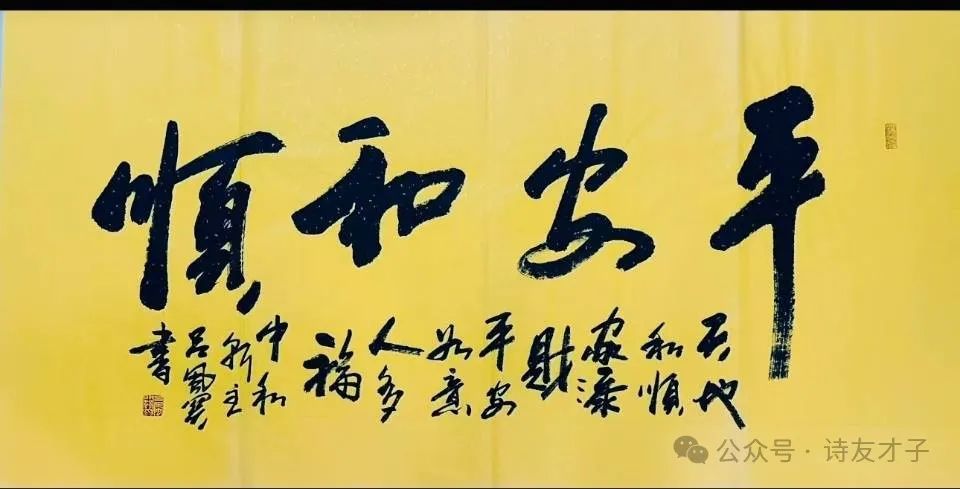 平安和順
天地
和順
家添
財
平安
如意
人多
福
中和
主
吕
書
公众号·诗友才子